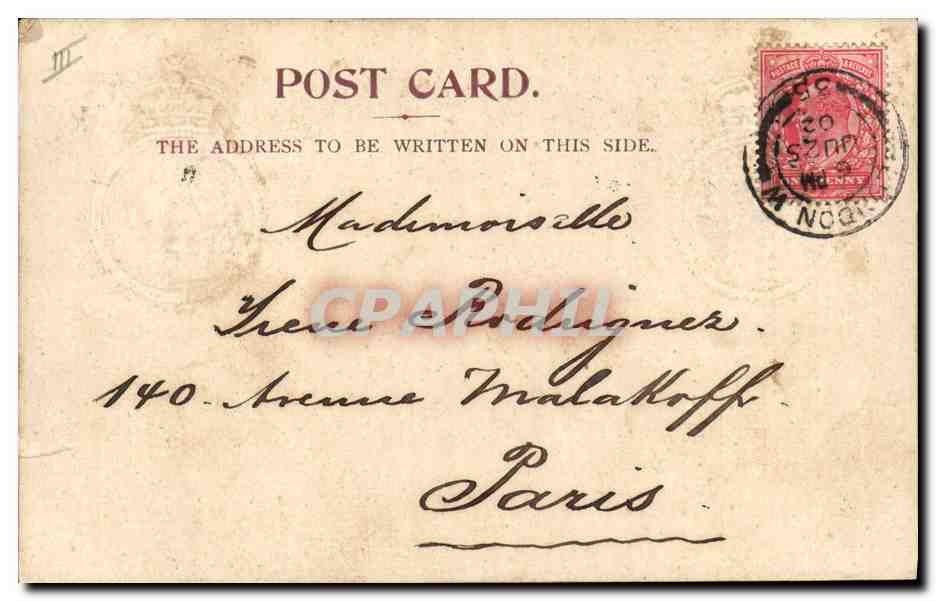 III
POST CARD.
THE ADDRESS TO BE WRITTEN ON THIS SIDE.
POSTAGE REVENUE
PENNY
LONDON. W
5 PM
JU 25
02
35
Mademoiselle
Irene Rodriguez.
140. Avenue Malakoff.
Paris
CPAPHIL